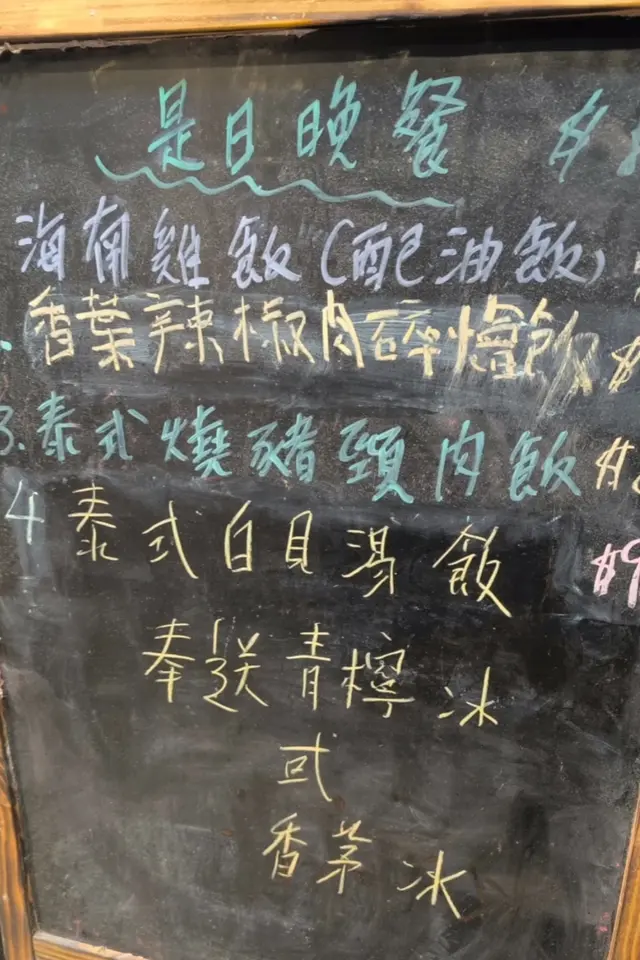 是日晚餐 $
海南雞飯(配油飯)
香葉辣椒肉碎燴飯 $
3.泰式燒豬頸肉飯 $
4 泰式白貝湯飯 $9
奉送青檸冰
或
香茅冰